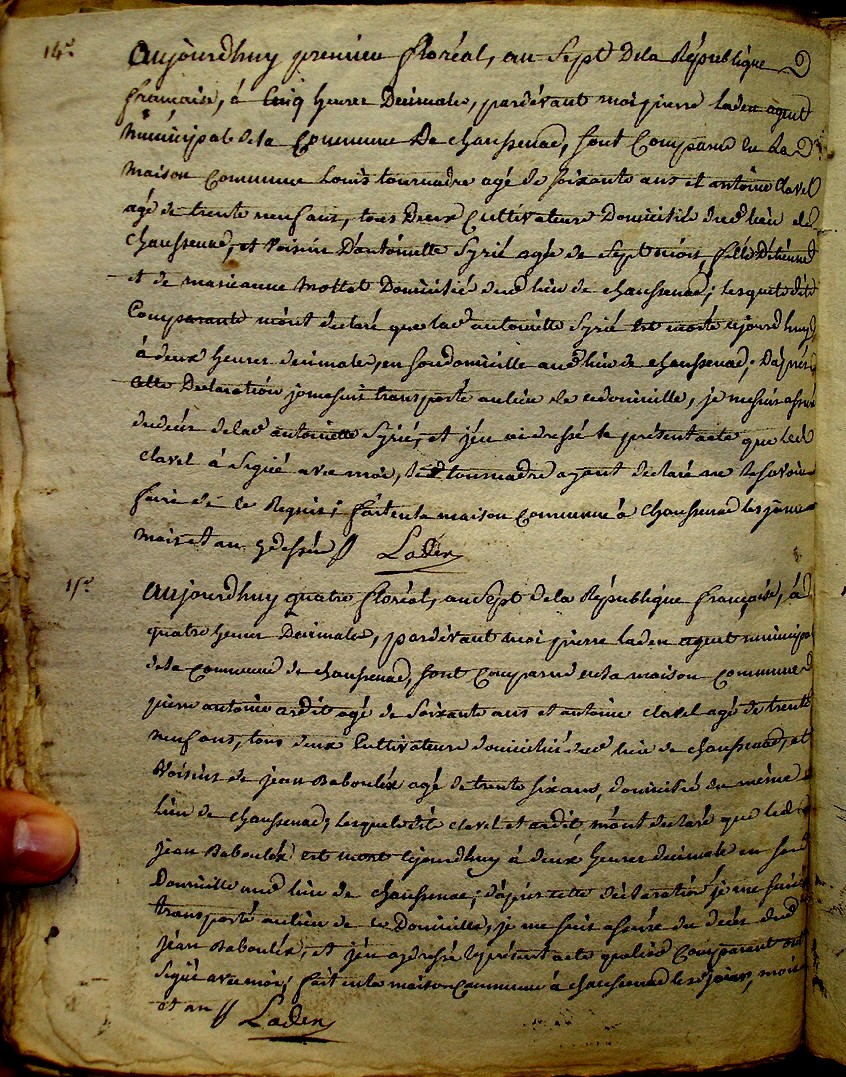 14e
aujourdhuy premier floréal, an Sept De la République
française, à Cinq heures Decimales, pardevant moi pierre laden agent
municipal de la Commune De chaussenac, sont Comparu en la De
maison Commune Louis tournadre agé de soixante ans et antoine clavel
agé de trente neuf ans, tous Deux Cultivateurs Domiciliés dud. lieu de
chaussenac, et Voisins D'antoinette Syrié agée de Sept mois fille D'étienne
et de marieanne mottet Domiciliés dud. lieu de chaussenac; lesquels dits
Comparants m'ont declaré que lad. antoinette Syrié est morte cejourdhuy
à deux heures decimales, en son domicille aud. lieu de chaussenac. Daprés
cette Declaration je me suis transporté au lieu de ce domicille, je me suis assuré
du decés de lad. antoinette Syrié, et j'en ai dressé le présent acte que led.
clavel à Signé avec moi, led. tournadre ayant declaré ne le savoir
faire de ce Requis; fait en la maison Commune à chaussenac les jour
mois et an
Laden
15e
aujourdhuy quatre floréal, an Sept de la République française, à
quatre heures Decimales, pardévant moi pierre laden agent municipal
de la Commune de chaussenac, sont Comparu en la maison Commune
pierre antoine ardit agé de Soixante ans et antoine clavel agé de trente
neuf ans, tous deux Cultivateurs domiciliés dud. lieu de chaussenac, et
Voisins de jean Baboulèx agé de trente six ans, domicilié du même
lieu de chaussenac; lesquels dit clavel et ardit m'ont declaré que led.
jean Baboulèx est mort cejourdhuy à deux heures decimale en son
Domicille aud. lieu de chaussenac; d'aprés cette déclaration je me suis
transporté au lieu de ce Domicille, je me suis assuré du decés dud.
jean Baboulèx, et j'en ay dressé le présent acte que lesd. Comparant ont
Signé avec moi; fait en la maison Commune à chaussenac les jour, mois
et an
Laden